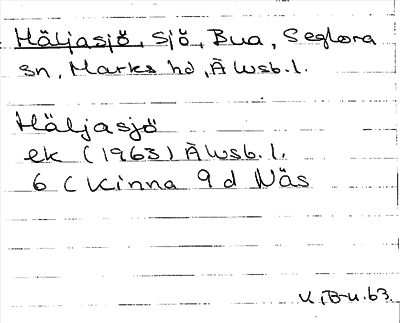 Häljasjö, sjö, Bua, Seglora
sn, Marks hd, Älvsb.l.
Häljasjö
ek (1963) Älvsb.l.
6 C Kinna 9 d Näs